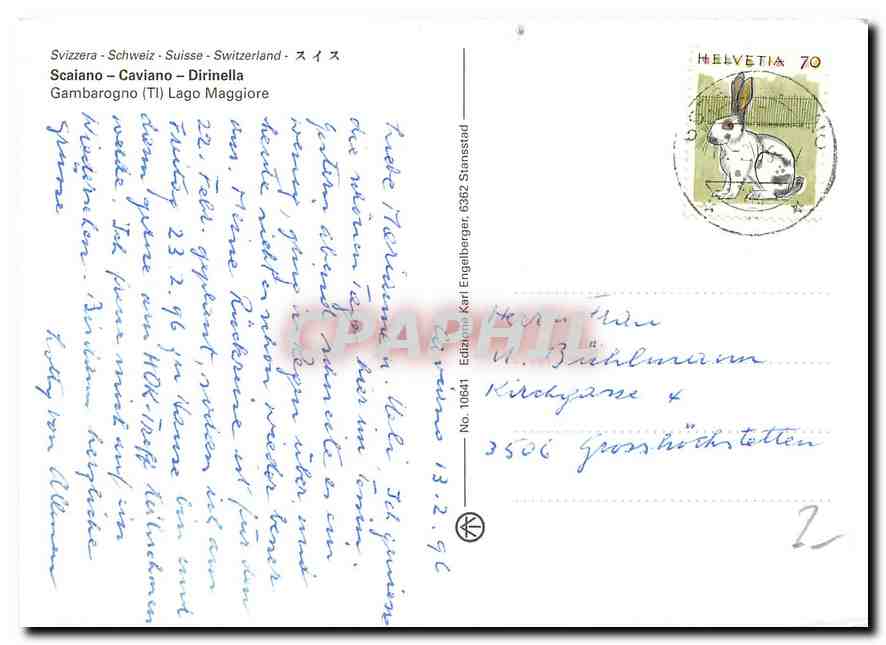 Svizzera - Schweiz - Suisse - Switzerland - スイス
Scaiano – Caviano – Dirinella
Gambarogno (TI) Lago Maggiore
HELVETIA 70
No. 10641 Edizione Karl Engelberger, 6362 Stansstad
CPAPHIL
Herr + Frau
U. Bühlmann
Kirchgasse 4
3506 Grosshöchstetten
13.2.96
Liebe Marianne, Ueli, Ich geniesse
die schönen Tage hier im Tessin.
Gestern abend schneite es ein
wenig, ging in Regen über und
heute sieht es schon wieder besser
aus. Meine Rückreise ist für den
22. Febr. geplant, sodass ich am
Freitag 23.2.96 zu Hause bin und
dann gerne am HOK-Treff teilnehmen
werde. Ich freue mich auf ein
Wiedersehen. Bis dann herzliche
Grüsse
Lotty von Allmen
2